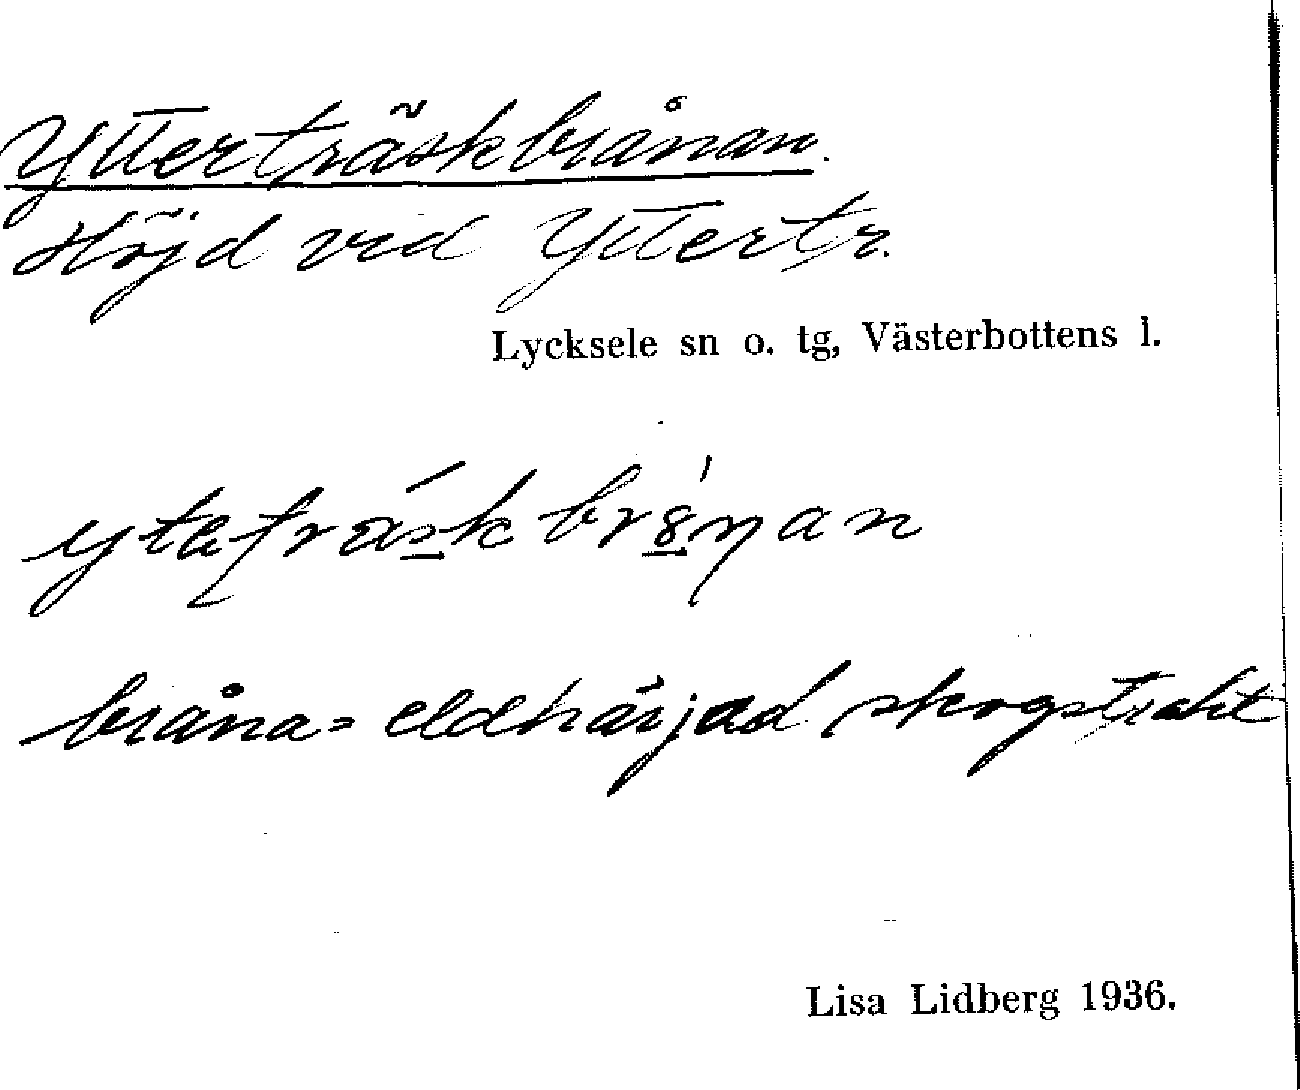 Ytterträskbrånan.
Höjd vid Yttertr.
Lycksele sn o. tg, Västerbottens l.
bråna = eldhärjad skogstrakt
Lisa Lidberg 1936.